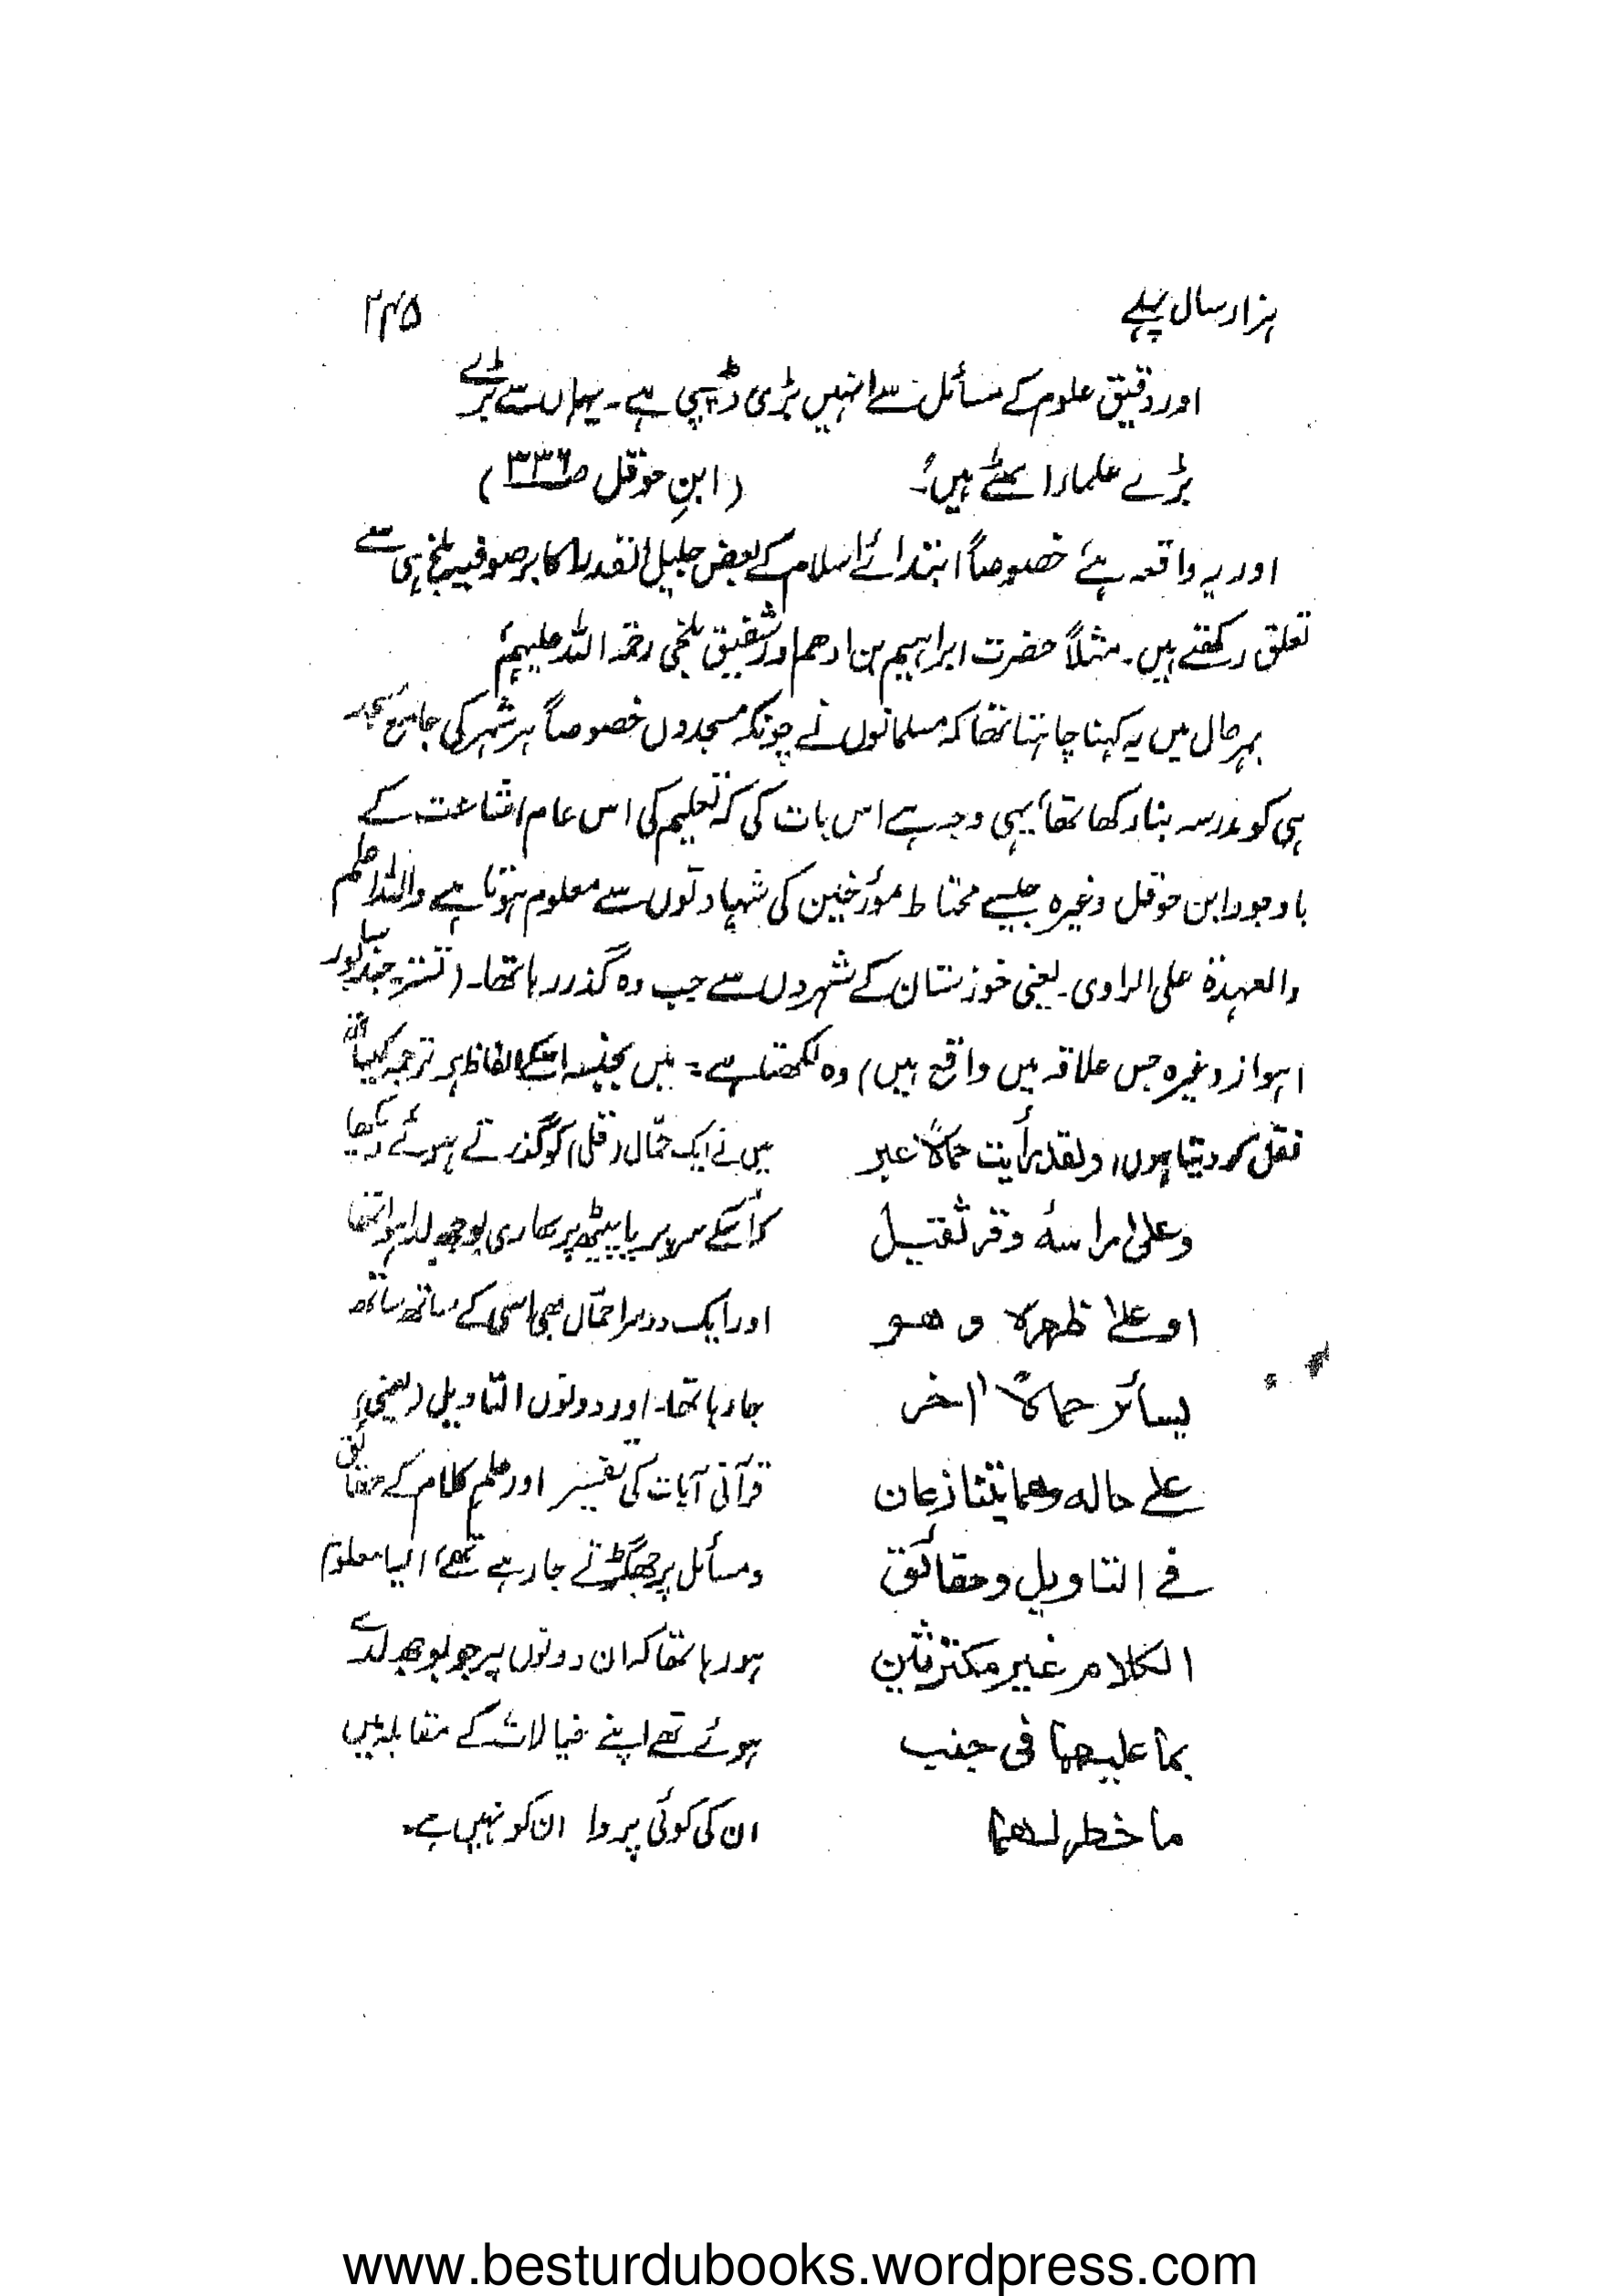 ہزار سال پہلے ۲۴۵
اور دقیق علوم کے مسائل سے انہیں بڑی دلچسپی ہے۔ یہاں سے بڑے
بڑے علماء اٹھے ہیں۔ (ابنِ حوقل ص۳۳۶)
اور یہ واقعہ ہے خصوصاً ابتدائے اسلام کے بعض جلیل القدر اکابر صوفیہ بلخ ہی سے
تعلق رکھتے ہیں۔ مثلاً حضرت ابراہیم بن ادھم اور شفیق بلخی رحمۃ اللہ علیہم
بہرحال میں یہ کہنا چاہتا تھا کہ مسلمانوں نے چونکہ مسجدوں خصوصاً ہر شہر کی جامع مسجد
ہی کو مدرسہ بنا رکھا تھا یہی وجہ ہے اس بات کی کہ تعلیم کی اس عام اشاعت کے
باوجود ابن حوقل وغیرہ جیسے محتاط مؤرخین کی شہادتوں سے معلوم ہوتا ہے واللہ اعلم
والعہدۃ علی الراوی۔ یعنی خوزستان کے شہروں سے جب وہ گذر رہا تھا۔ (تستر جندیسابور
اہواز وغیرہ جس علاقہ میں واقع ہیں) وہ لکھتا ہے۔ میں بجنسہ اسکے الفاظ
نقل کر دیتا ہوں، ولقد رأیت حمالا عبر میں نے ایک حمّال (قلی) کو گذرتے ہوئے دیکھا
وعلیٰ راسہ وقر ثقیل کہ اسکے سر پر یا پیٹھ پر بھاری بوجھ لدا ہوا تھا
او علے ظهره و هو اور ایک دوسرا حمّال بھی اسی کے ساتھ ساتھ
یسائر حمالاً اخر جا رہا تھا۔ اور دونوں التاویل (یعنی
علے حاله وهما یتنازعان قرآنی آیات کی تفسیر اور علم کلام کے حقائق
فے التاویل وحقائق ومسائل پر جھگڑتے جا رہے تھے، ایسا معلوم
الکلام غیر مکترثین ہو رہا تھا کہ ان دونوں پر جو بوجھ لدے
بما علیهما فی جنب ہوئے تھے اپنے خیالات کے مقابلہ میں
ما خطر لهما ان کی کوئی پروا ان کو نہیں ہے۔
www.besturdubooks.wordpress.com